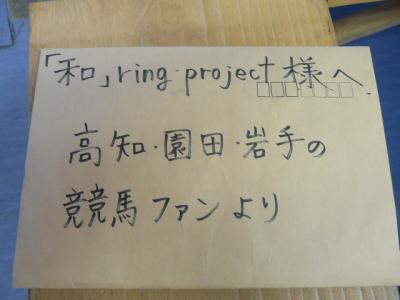 「和」ring・project様へ.
高知・園田・岩手の
競馬ファンより